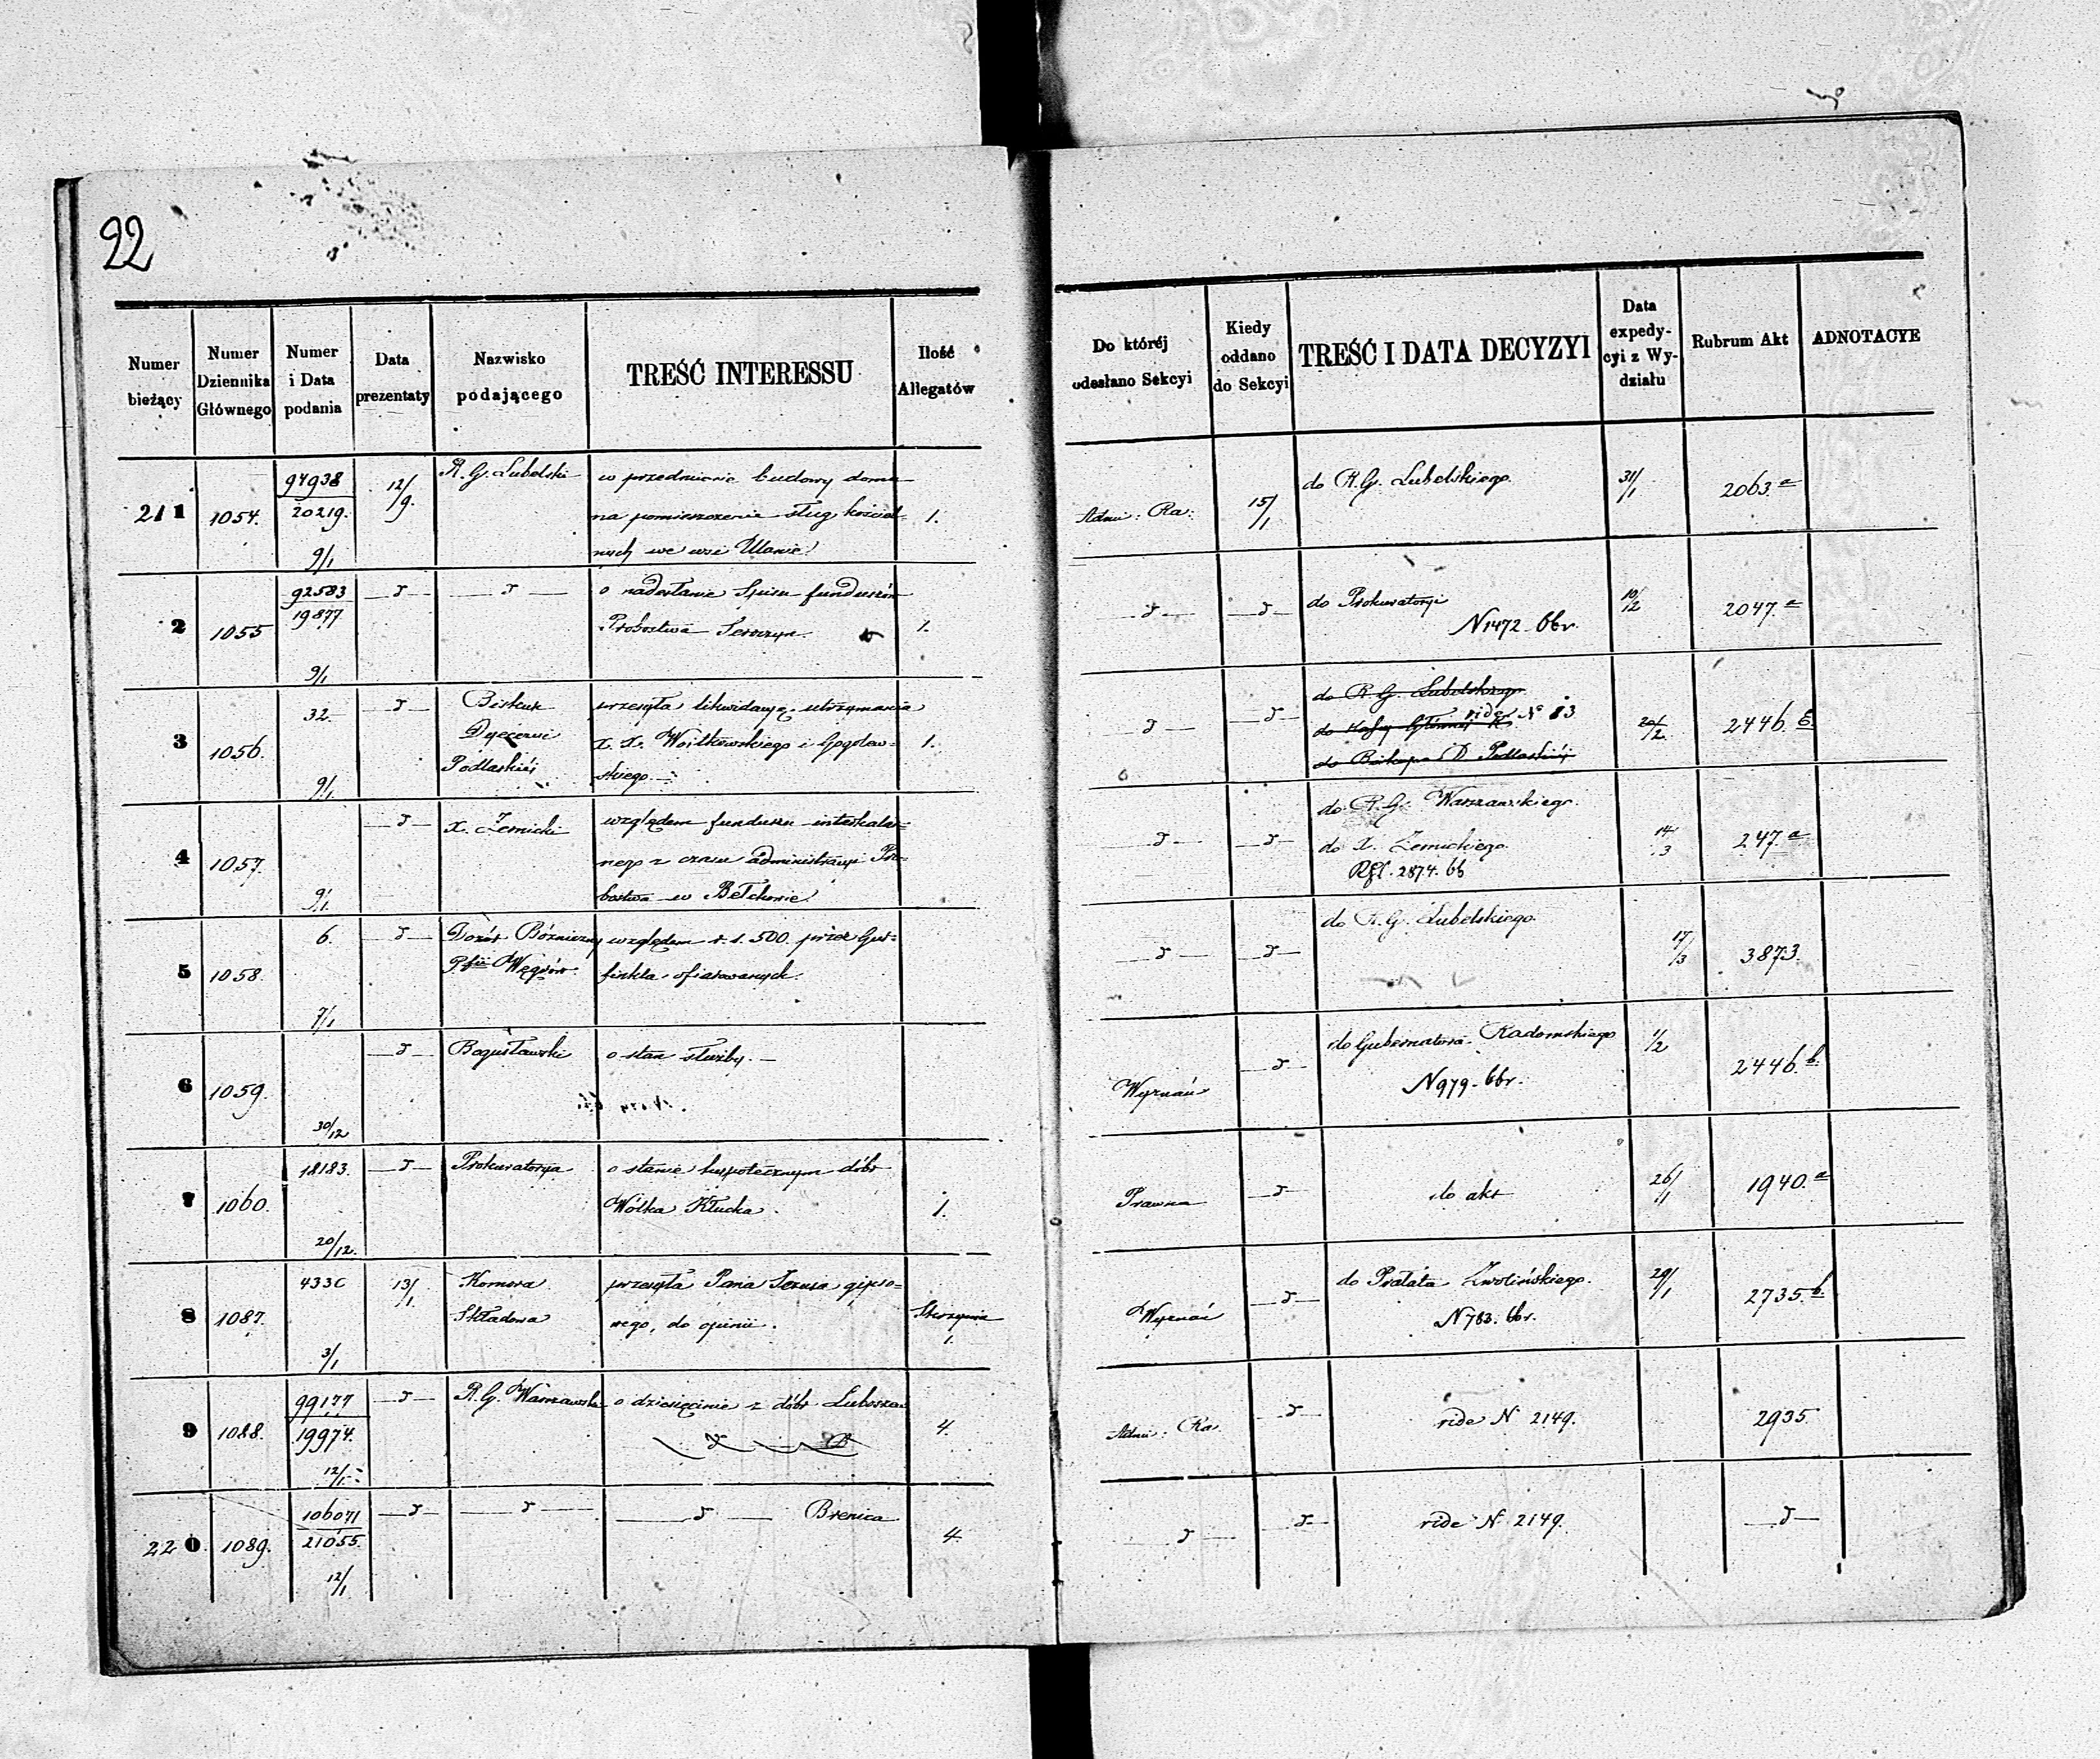 22
Numer bieżący
Numer Dziennika Głównego
Numer i Data podania
Data prezentaty
Nazwisko podającego
TREŚĆ INTERESSU
Ilość Allegatów
Do któréj odesłano Sekcyi
Kiedy oddano do Sekcyi
TREŚĆ I DATA DECYZYI
Data expedycyi z Wydziału
Rubrum Akt
ADNOTACYE
211 1054. 94938 20219. 9/1 12/9. R. G. Lubelski
w przedmiocie budowy domu
na pomieszczenie sług kościel-
nych we wsi Ulanie
1. Admi: Ra: 15/1 do R. G. Lubelskiego. 31/1 2063.a
2 1055 92583 19877 9/1
o nadesłanie Spisu funduszów
Probostwa Seroczyn.
1. do Prokuratoryi
N 1472 bbr. 10/12 2047.a
3 1056. 32. 9/1.
Biskup
Dyecezyi
Podlaskiéj
przesyła likwidacyą utrzymania
X. X. Woitkowskiego i Gogolew-
skiego.
1. do R. G. Lubelskiego
vide N° 83
do Biskupa D. Podlaskiéj
20/2 2446.
4 1057. 9/1. X. Zernicki
względem funduszu interkalar-
nego z czasu administracyi Pro-
bostwa w Bełchowie
do R. G. Warszawskiego.
do X. Zernickiego.
2874. bb 14/3 247.a
5 1058. 6. 7/1
Dozór Bóżniczny
Węgrów
względem r. s. 500 przez Gut-
finkla ofiarowanych.
do R. G. Lubelskiego. 17/3 3873.
6 1059. 30/12 Bogusławski o stan służby. —
Wyznań do Gubernatora Radomskiego
N 979 bbr. 1/2 2446.b
7 1060. 18183. 20/12. Prokuratorya
o stanie hypotecznym dóbr
Wólka Kłucka.
1. Prawna do akt 26/1 1940.a
8 1087. 4330 3/1 13/1
Komora
Składowa
przesyła Pana Jezusa gipso-
wego, do opinii.
Skrzynia
1. Wyznań do Prałata Zwolińskiego.
N 783. bbr. 29/1 2735.b
9 1088. 99177 19974. 12/1 R. G. Warszawski o dziesięcinie z dóbr
4. Admi: Ra. vide N 2149. 2935.
220. 1089. 106071 21055. 12/1 Brenica
4. vide N 2149.